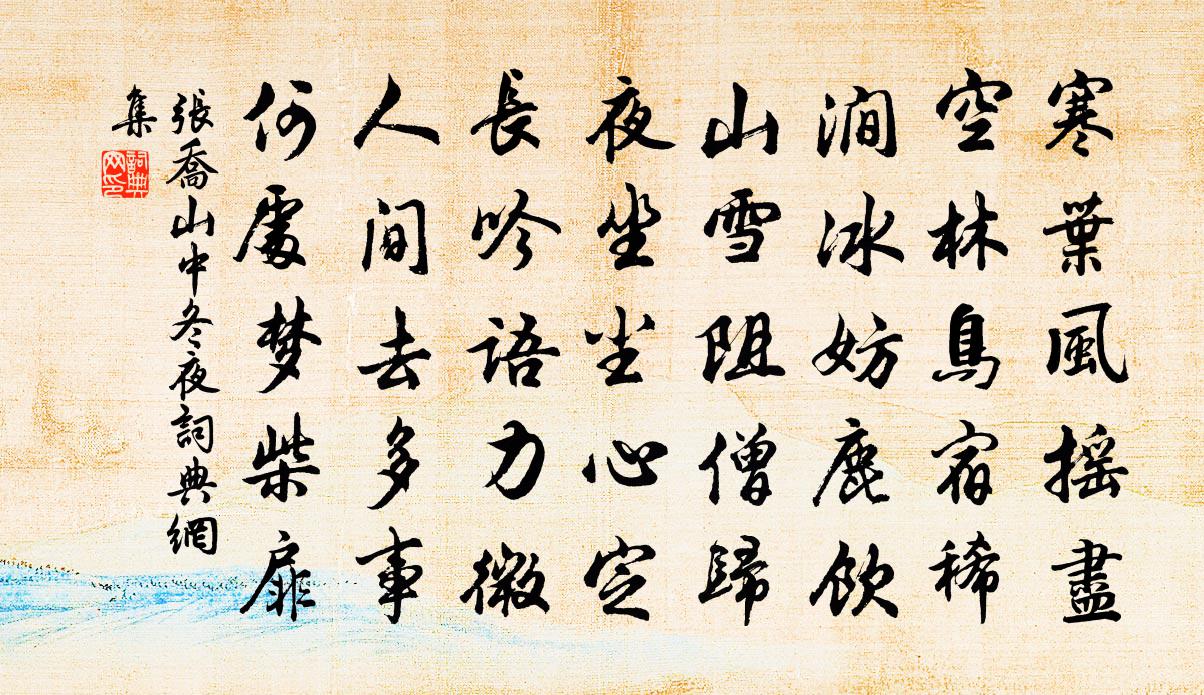 寒葉風摇盡
空林鳥宿稀
澗冰妨鹿飲
山雪阻僧歸
夜坐尘心定
長吟語力微
人间去多事
何處梦柴扉
張喬山中冬夜詞典網
集
詞典
网印